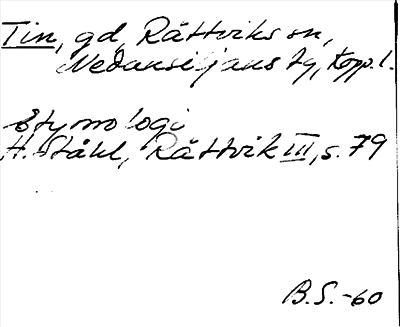 Tin, gd, Rättviks sn,
Nedansiljans tg, Kopp. l.
Etymologi
H. Ståhl, Rättvik III, s. 79
B.S.-60